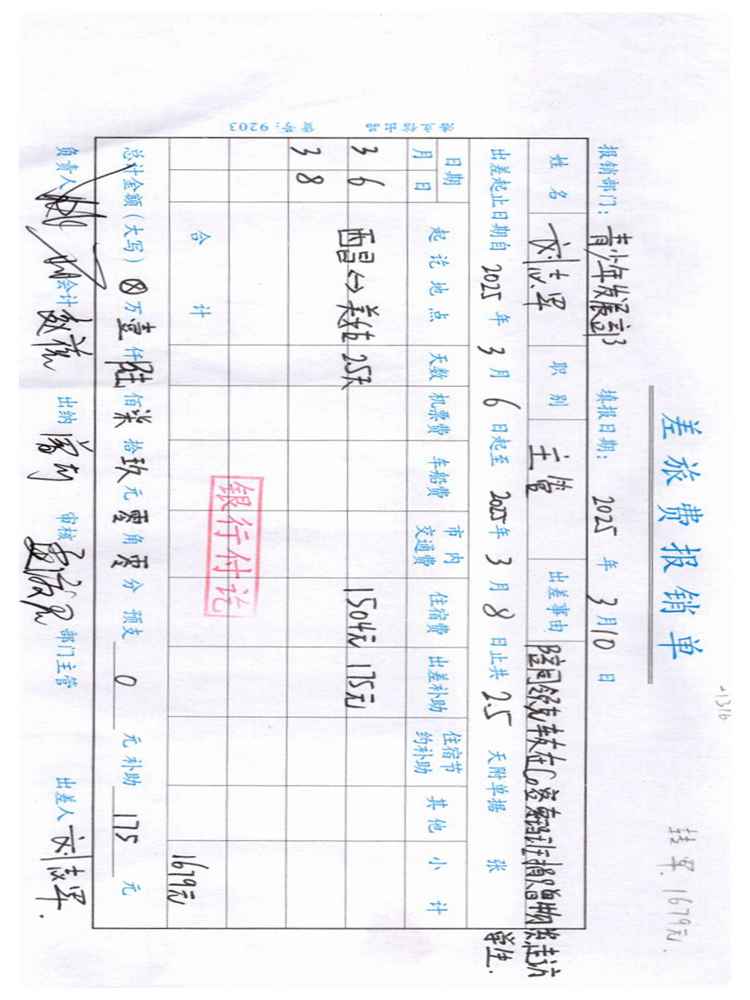 差旅费报销单
报销部门：青少年发展部 填报日期：2025年3月10日
姓名 刘志军 职别 主管 出差事由
学生.
出差起止日期自2025年3月6日起至2025年3月8日止共2.5天附单据 张
日期 起讫地点 天数 机票费 车船费 市内交通费 住宿费 出差补助 住宿节约补助 其他 小计
月 日
3 6 西昌↔美姑 2.5天 1504元 175元
3 8
合计 1679元
银行付讫
总计金额（大写）⊗万壹仟陆佰柒拾玖元零角零分 预支 0 元 补助 175 元
负责人 会计 出纳 审核 部门主管 出差人 刘志军.
编号：9203
-1316
转 军. 1679元.